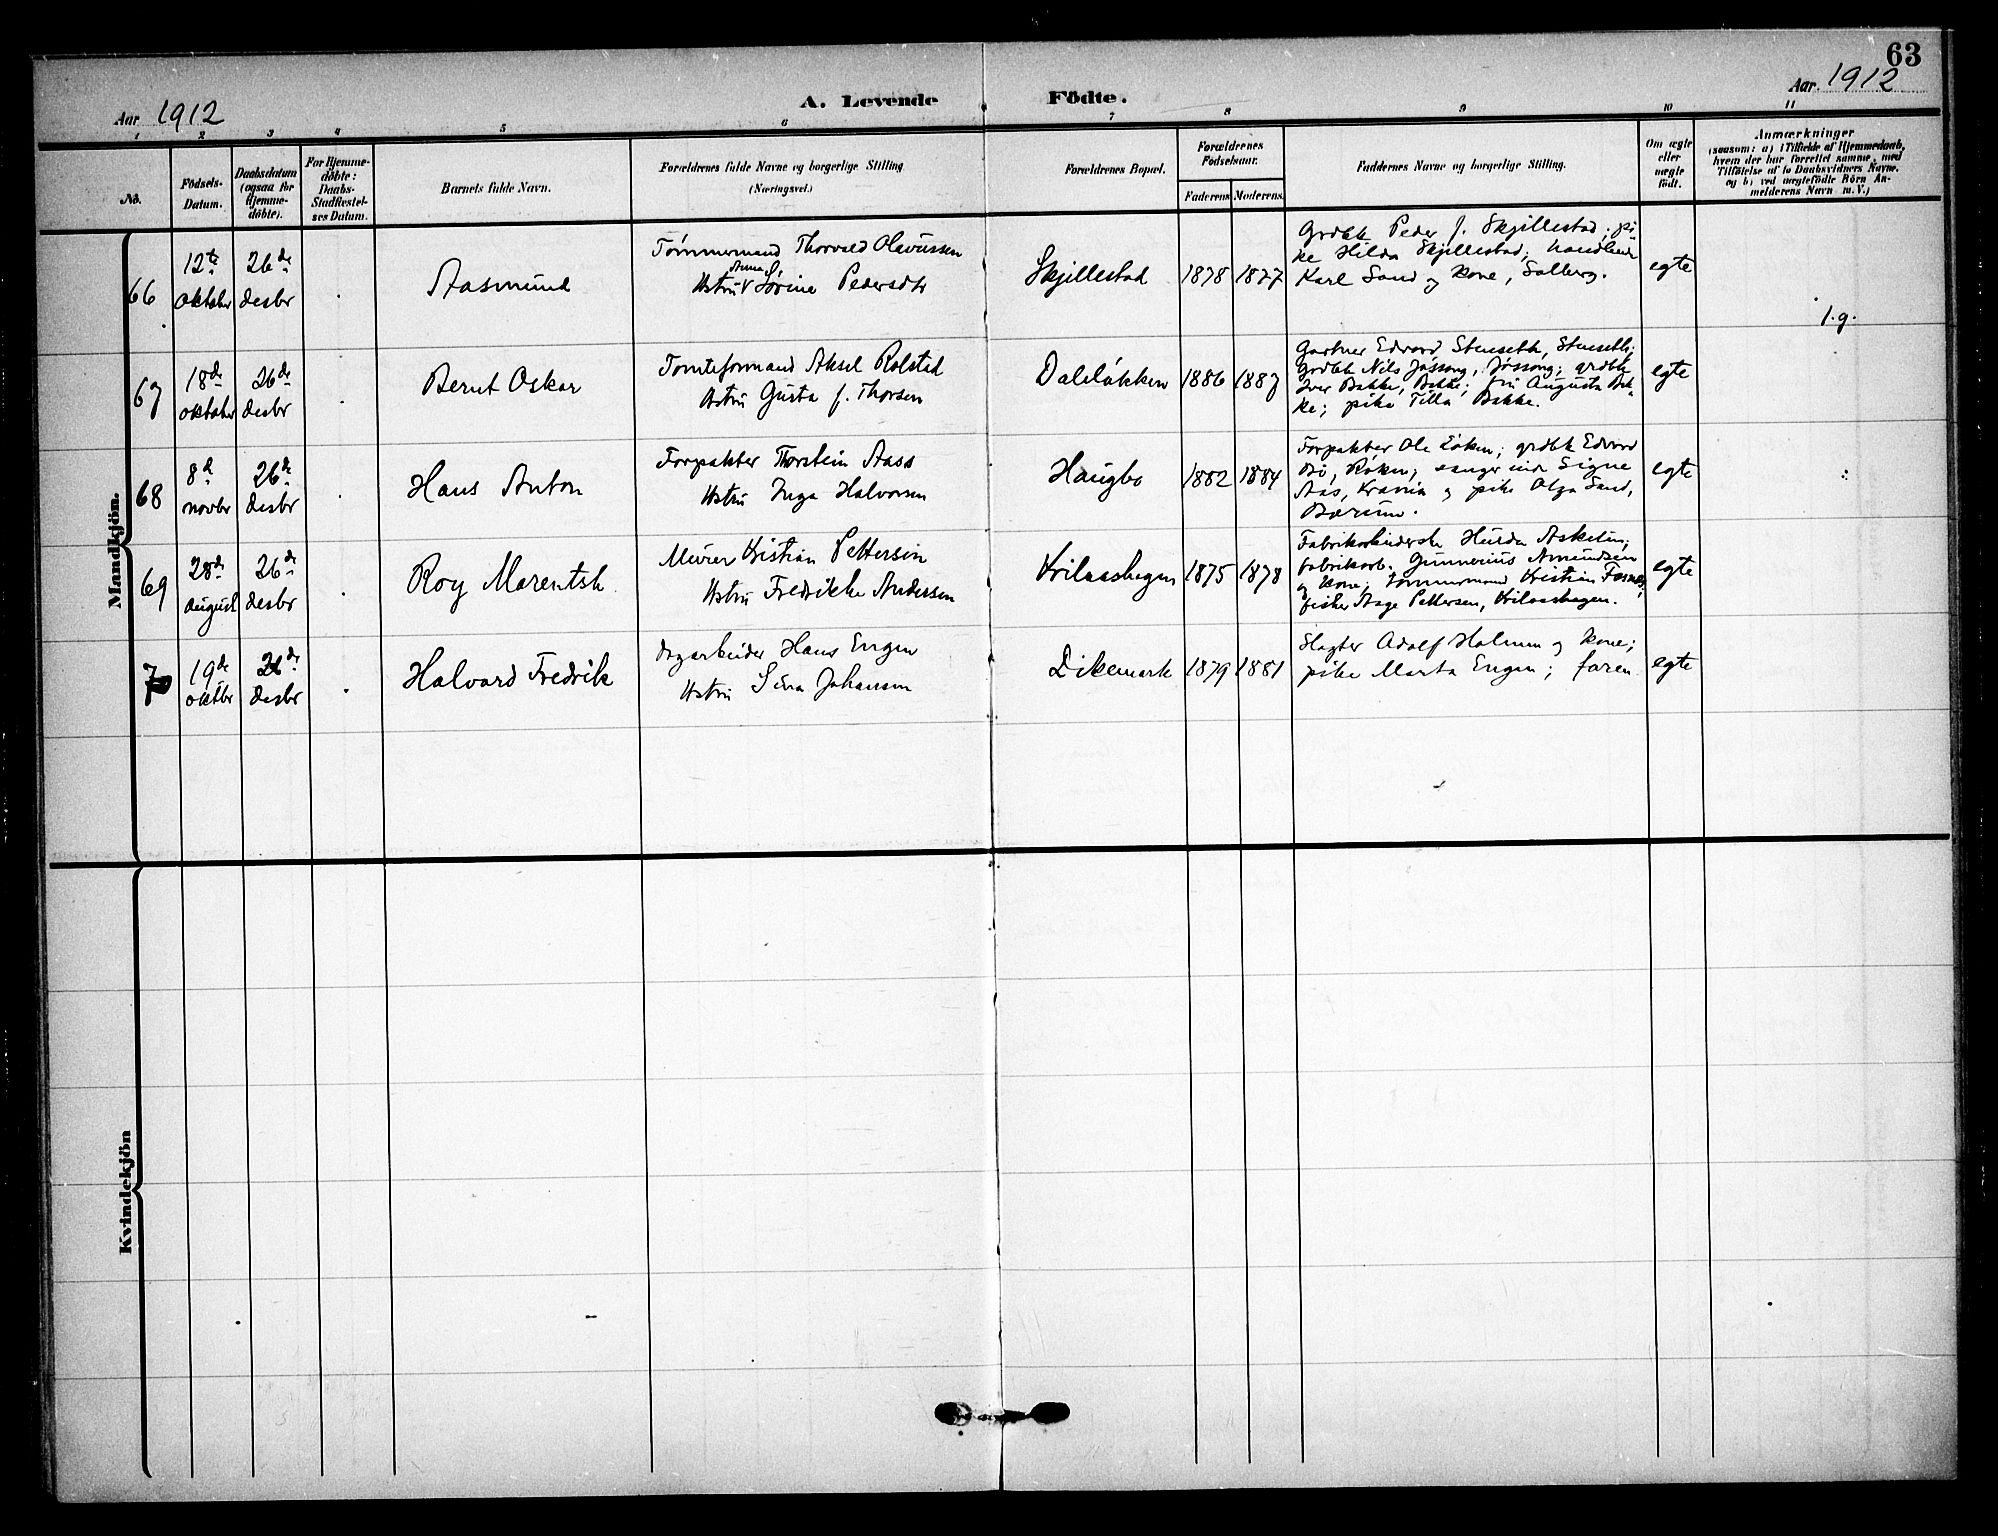 63
Aar 1912
A. Levende Födte.
Aar 1912
1 2 3 4 5 6 7 8 9 10 11
No.
Födsels-
Datum.
Daabsdatum
(ogsaa for
Hjemme-
döbte).
For Hjemme-
döbte:
Daabs-
Stadfæstel-
ses Datum.
Barnets fulde Navn.
Forældrenes fulde Navne og borgerlige Stilling
(Næringsvei.)
Forældrenes Bopæl.
Forældrenes
Födselsaar.
Faderens Moderens
Faddernes Navne og borgerlige Stilling.
Om ægte
eller
uægte
födt.
Anmærkninger
(saasom: a) i Tilfælde af Hjemmedaab,
hvem der har forrettet samme, med
Tilföielse af to Daabsvidners Navne,
og b) ved uægtefödte Börn An-
melderens Navn m. V.)
Mandkjön.
66
12te
oktober
26de
desbr
Aasmund
Tömmermand Thorvald Olavussen
Anna
Hstru Sörine Pedersdtr
Skjillestad
1878 1877
Grdbk Peder J. Skjillestad; pi-
ke Hilda Skjillestad; handlende
Karl Sand og kone, Solberg.
egte
1.g.
67
18de
oktober
26de
desbr
Bernt Oskar
Tomteformand Aksel Rolstad
Hstru Gusta f. Thorsen
Dalelökken
1886 1887
Gartner Edvard Stenseth, Stenseth;
Grdbk Nils Jössong, Jössong; grdbk
Iver Bakke, Bakke; fru Augusta Bak-
ke; pike Tilla Bakke.
egte
68
8d
novbr
26de
desbr
Hans Anton
Forpakter Thorstein Aass
Hstru Inga Halvorsen
Haugbo
1882 1884
Forpakter Ole Eöken; grdbk Edvard
Bö, Röken; sangerinde Signe
Aas, Krania og pike Olga Sand,
Bærum.
egte
69
28de
august
26de
desbr
Roy Marentsh
Murer Kristian Pettersen
Hstru Fredrikke Andersen
Hvilasshagen
1875 1878
Fabrikarbeiderske Hulda Askelin;
fabrikarb. Gunnerius Amundsen
og kone; tömmermand Kristian Fosnes;
fisker Aage Pettersen, Hvilasshagen.
egte
70
19de
oktbr
26de
desbr
Halvard Fredrik
Dagarbeider Hans Engen
Hstru Sina Johansen
Dikemark
1879 1881
Slagter Adolf Holmen og kone;
pike Marta Engen; faren.
egte
Kvindekjön